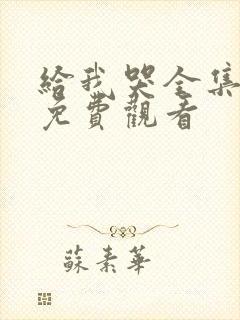 給我哭全集
免費觀看
蘇素華